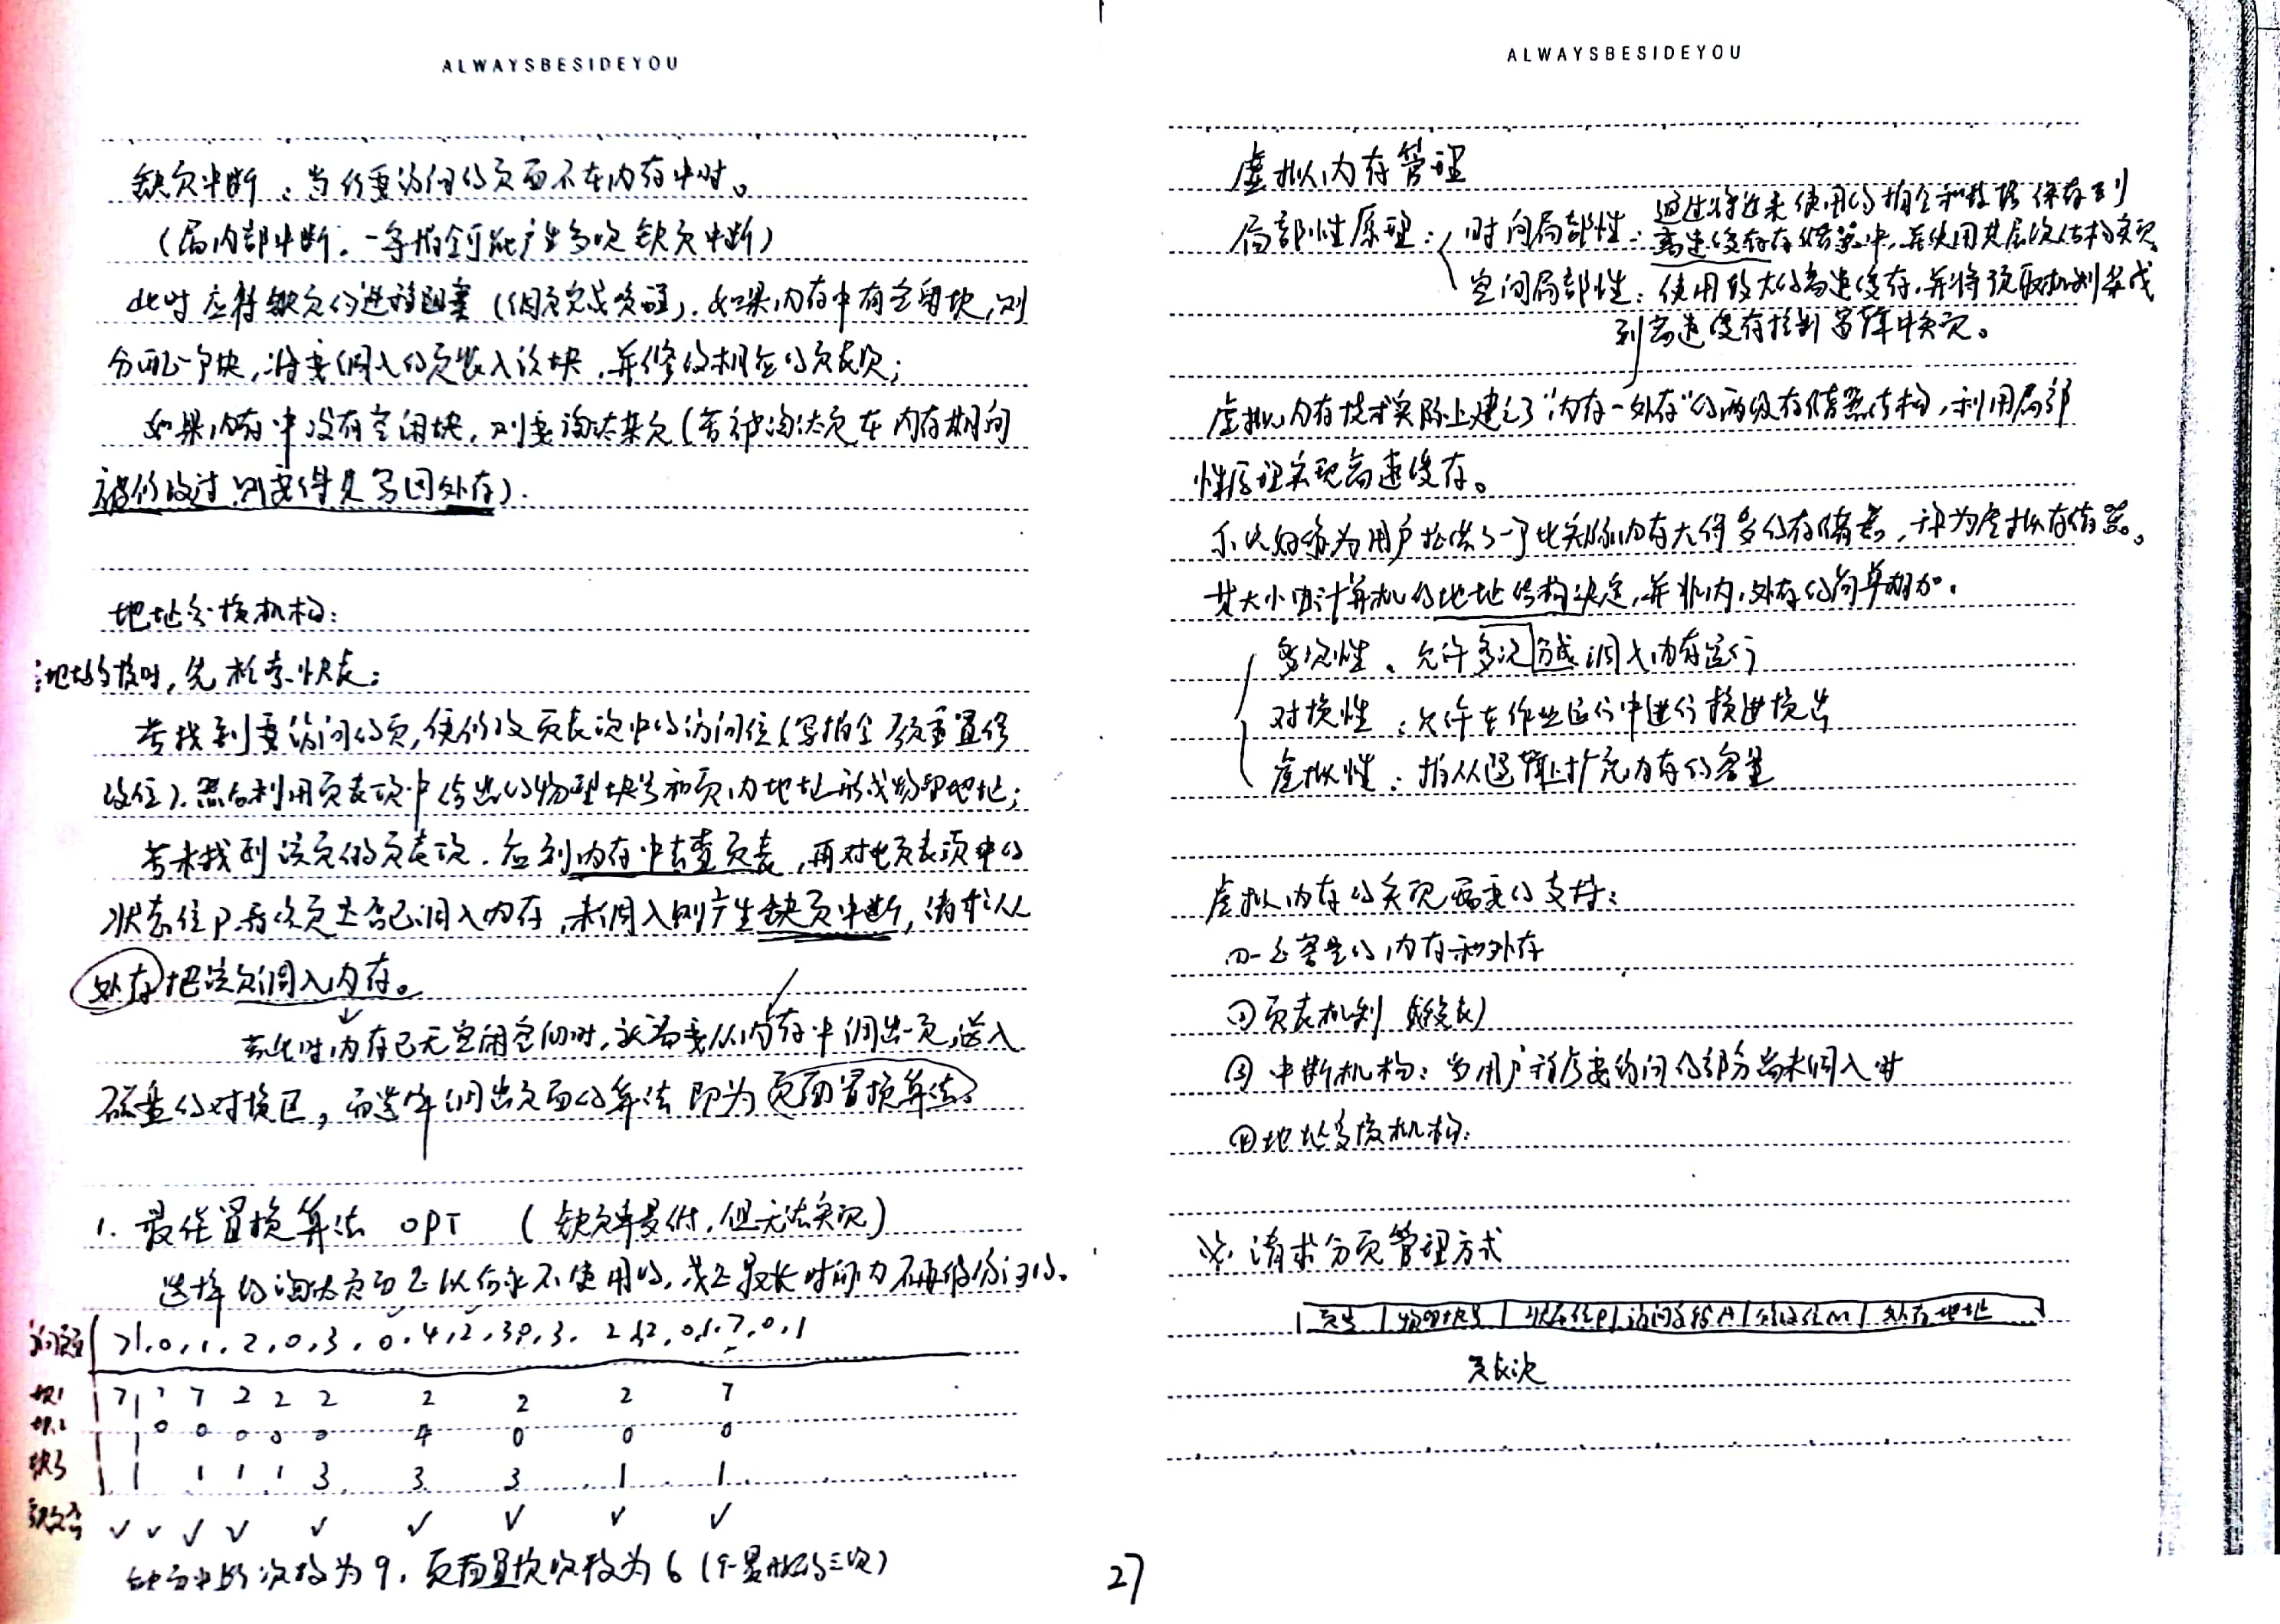 ALWAYSBESIDEYOU
缺页中断：当所要访问的页面不在内存中时。
（属内部中断，一条指令可能产生多次缺页中断）
此时应将缺页的进程阻塞（调页完成唤醒），如果内存中有空闲块，则
分配一个块，将要调入的页装入该块，并修改相应的页表项；
如果内存中没有空闲块，则要淘汰某页（若被淘汰页在内存期间
被修改过，则要将其写回外存）.
地址变换机构：
地址变换时，先检索快表：
若找到要访问的页，便修改页表项中的访问位（写指令须重置修
改位），然后利用页表项中给出的物理块号和页内地址形成物理地址；
若未找到该页的页表项，应到内存中去查页表，再对比页表项中的
状态位P，看该页是否已调入内存，未调入则产生缺页中断，请求从
外存把该页调入内存。
若此时内存已无空闲空间时，就需要从内存中调出一页，送入
磁盘的对换区，而选择调出页面的算法即为页面置换算法。
1. 最佳置换算法 OPT （缺页率最低，但无法实现）
选择的淘汰页面是以后永不使用的，或是最长时间内不再被访问的。
访问页面 7,0,1,2,0,3,0,4,2,3,0,3,2,1,2,0,1,7,0,1
块1 7 7 7 2 2 2 2 2 2 7
块2 0 0 0 0 0 4 0 0 0
块3 1 1 1 3 3 3 1 1
缺页否 √ √ √ √ √ √ √ √ √
缺页中断次数为9，页面置换次数为6（9-最开始的三次）
27
ALWAYSBESIDEYOU
虚拟内存管理
局部性原理：时间局部性：通过将近来使用的指令和数据保存到
高速缓存存储器中，并使用其层次结构实现
空间局部性：使用较大的高速缓存，并将预取机制集成
到高速缓存控制逻辑中实现。
虚拟内存技术实际上建立了“内存－外存”的两级存储器结构，利用局部
性原理实现高速缓存。
系统好像为用户提供了一个比实际内存大得多的存储器，称为虚拟存储器。
其大小由计算机的地址结构决定，并非内、外存的简单相加。
多次性：允许多次分成调入内存运行
对换性：允许在作业运行中进行换进换出
虚拟性：指从逻辑上扩充内存的容量
虚拟内存的实现需要的支持：
①一定容量的内存和外存
②页表机制（或段表）
③中断机构：当用户程序要访问的部分尚未调入时
④地址变换机构：
※ 请求分页管理方式
页号 | 物理块号 | 状态位P | 访问字段A | 修改位M | 外存地址
页表项